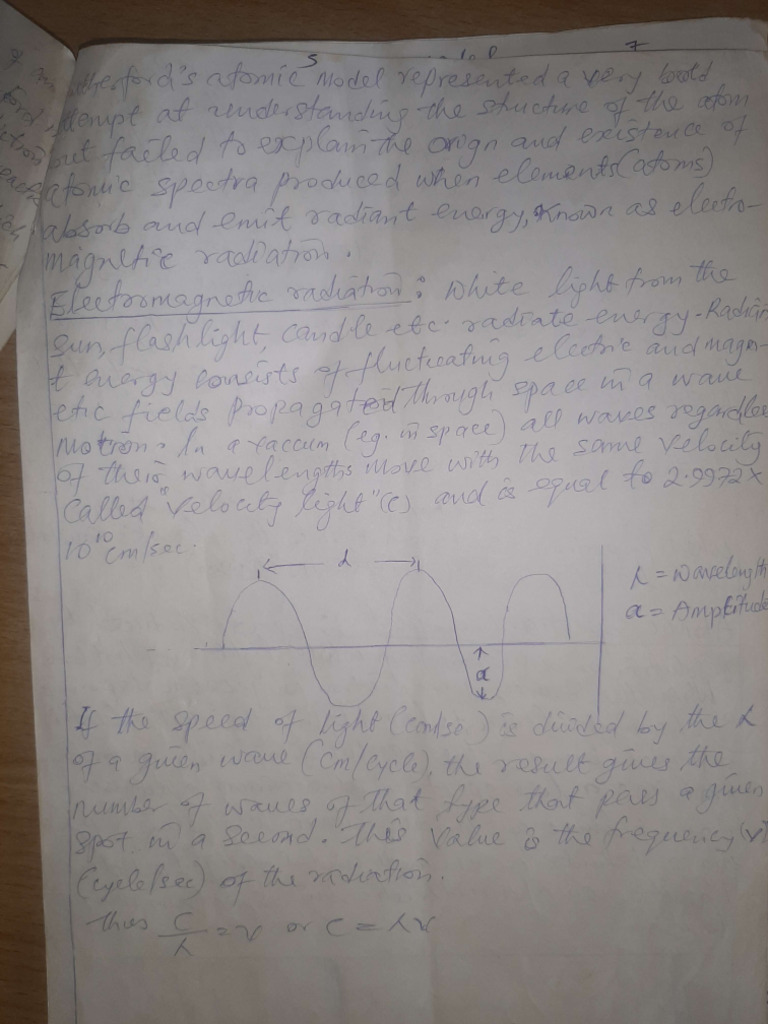 Rutherford's atomic Model represented a very bold
attempt at understanding the structure of the atom
but failed to explain the orign and existence of
atomic spectra produced when elements (atoms)
absorb and emit radiant energy, known as electro-
magnetic radiation.
Electromagnetic radiation: White light from the
sun, flashlight, candle etc. radiate energy - Radian
t energy consists of fluctuating electric and magn-
etic fields propagated through space in a wave
motion. In a vaccum (eg. in space) all waves regardless
of their wavelengths move with the same velocity
called "velocity light" (c) and is equal to 2.9972 x
10^10 cm/sec.
λ
λ = wavelength
a = Amplitude
a
If the speed of light (cm/sec) is divided by the λ
of a given wave (cm/cycle), the result gives the
number of waves of that type that pass a given
spot in a second. This value is the frequency (v)
(cycle/sec) of the radiation.
Thus C/λ = v or C = λv